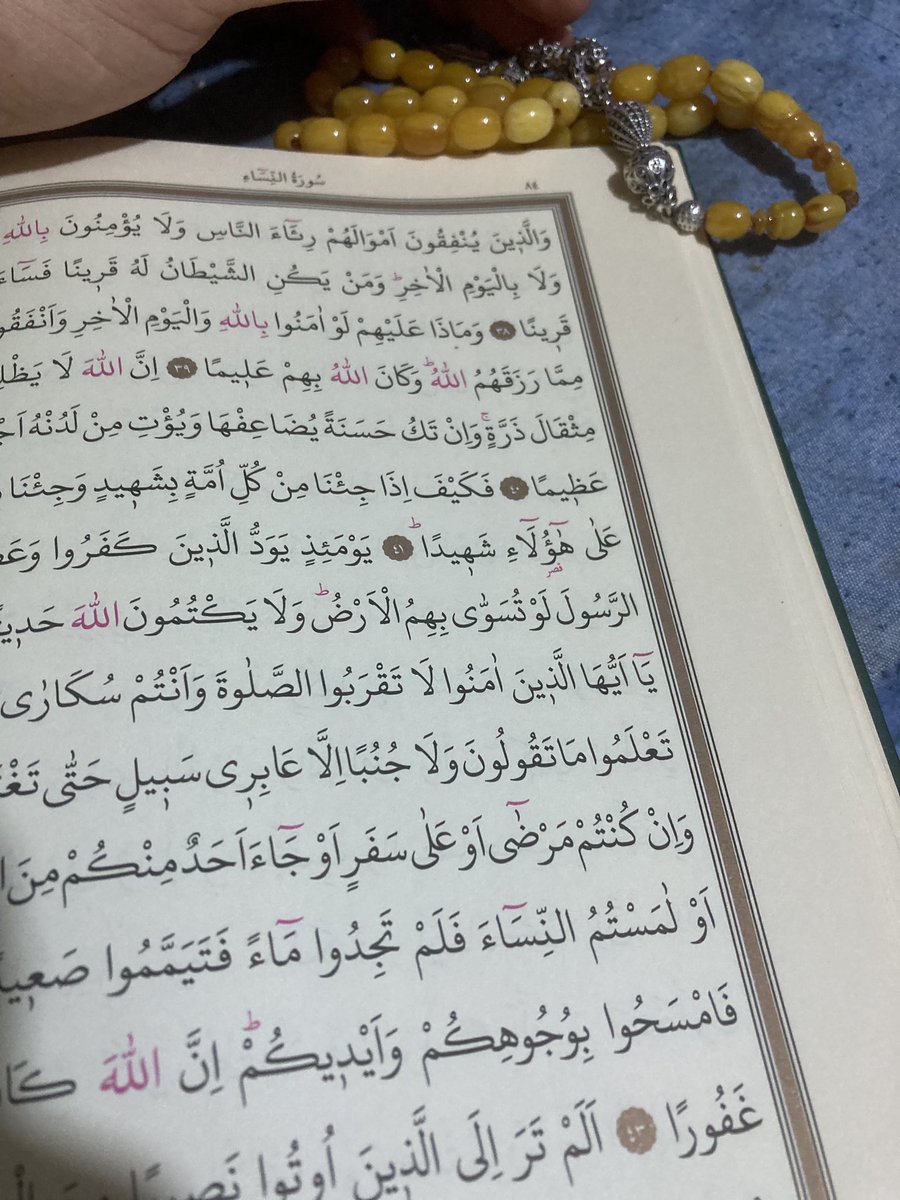 ٨٤ سُورَةُ النِّسَٓاءِ
وَالَّذ۪ينَ يُنْفِقُونَ اَمْوَالَهُمْ رِئَٓاءَ النَّاسِ وَلَا يُؤْمِنُونَ بِاللّٰهِ
وَلَا بِالْيَوْمِ الْاٰخِرِۜ وَمَنْ يَكُنِ الشَّيْطَانُ لَهُ قَر۪ينًا فَسَٓاءَ
قَر۪ينًا ﴿٣٨﴾ وَمَاذَا عَلَيْهِمْ لَوْ اٰمَنُوا بِاللّٰهِ وَالْيَوْمِ الْاٰخِرِ وَاَنْفَقُو
مِمَّا رَزَقَهُمُ اللّٰهُۜ وَكَانَ اللّٰهُ بِهِمْ عَل۪يمًا ﴿٣٩﴾ اِنَّ اللّٰهَ لَا يَظْلِ
مِثْقَالَ ذَرَّةٍۚ وَاِنْ تَكُ حَسَنَةً يُضَاعِفْهَا وَيُؤْتِ مِنْ لَدُنْهُ اَجْ
عَظ۪يمًا ﴿٤٠﴾ فَكَيْفَ اِذَا جِئْنَا مِنْ كُلِّ اُمَّةٍ بِشَه۪يدٍ وَجِئْنَا
عَلٰى هٰٓؤُ۬لَٓاءِ شَه۪يدًاۜ ﴿٤١﴾ يَوْمَئِذٍ يَوَدُّ الَّذ۪ينَ كَفَرُوا وَعَصَ
الرَّسُولَ لَوْ تُسَوّٰى بِهِمُ الْاَرْضُۜ وَلَا يَكْتُمُونَ اللّٰهَ حَد۪يثًا
يَٓا اَيُّهَا الَّذ۪ينَ اٰمَنُوا لَا تَقْرَبُوا الصَّلٰوةَ وَاَنْتُمْ سُكَارٰى
تَعْلَمُوا مَا تَقُولُونَ وَلَا جُنُبًا اِلَّا عَابِر۪ي سَب۪يلٍ حَتّٰى تَغْتَ
وَاِنْ كُنْتُمْ مَرْضٰٓى اَوْ عَلٰى سَفَرٍ اَوْ جَٓاءَ اَحَدٌ مِنْكُمْ مِنَ
اَوْ لٰمَسْتُمُ النِّسَٓاءَ فَلَمْ تَجِدُوا مَٓاءً فَتَيَمَّمُوا صَع۪يدً
فَامْسَحُوا بِوُجُوهِكُمْ وَاَيْد۪يكُمْۜ اِنَّ اللّٰهَ كَا
غَفُورًا ﴿٤٣﴾ اَلَمْ تَرَ اِلَى الَّذ۪ينَ اُو۫تُوا نَص۪يبًا